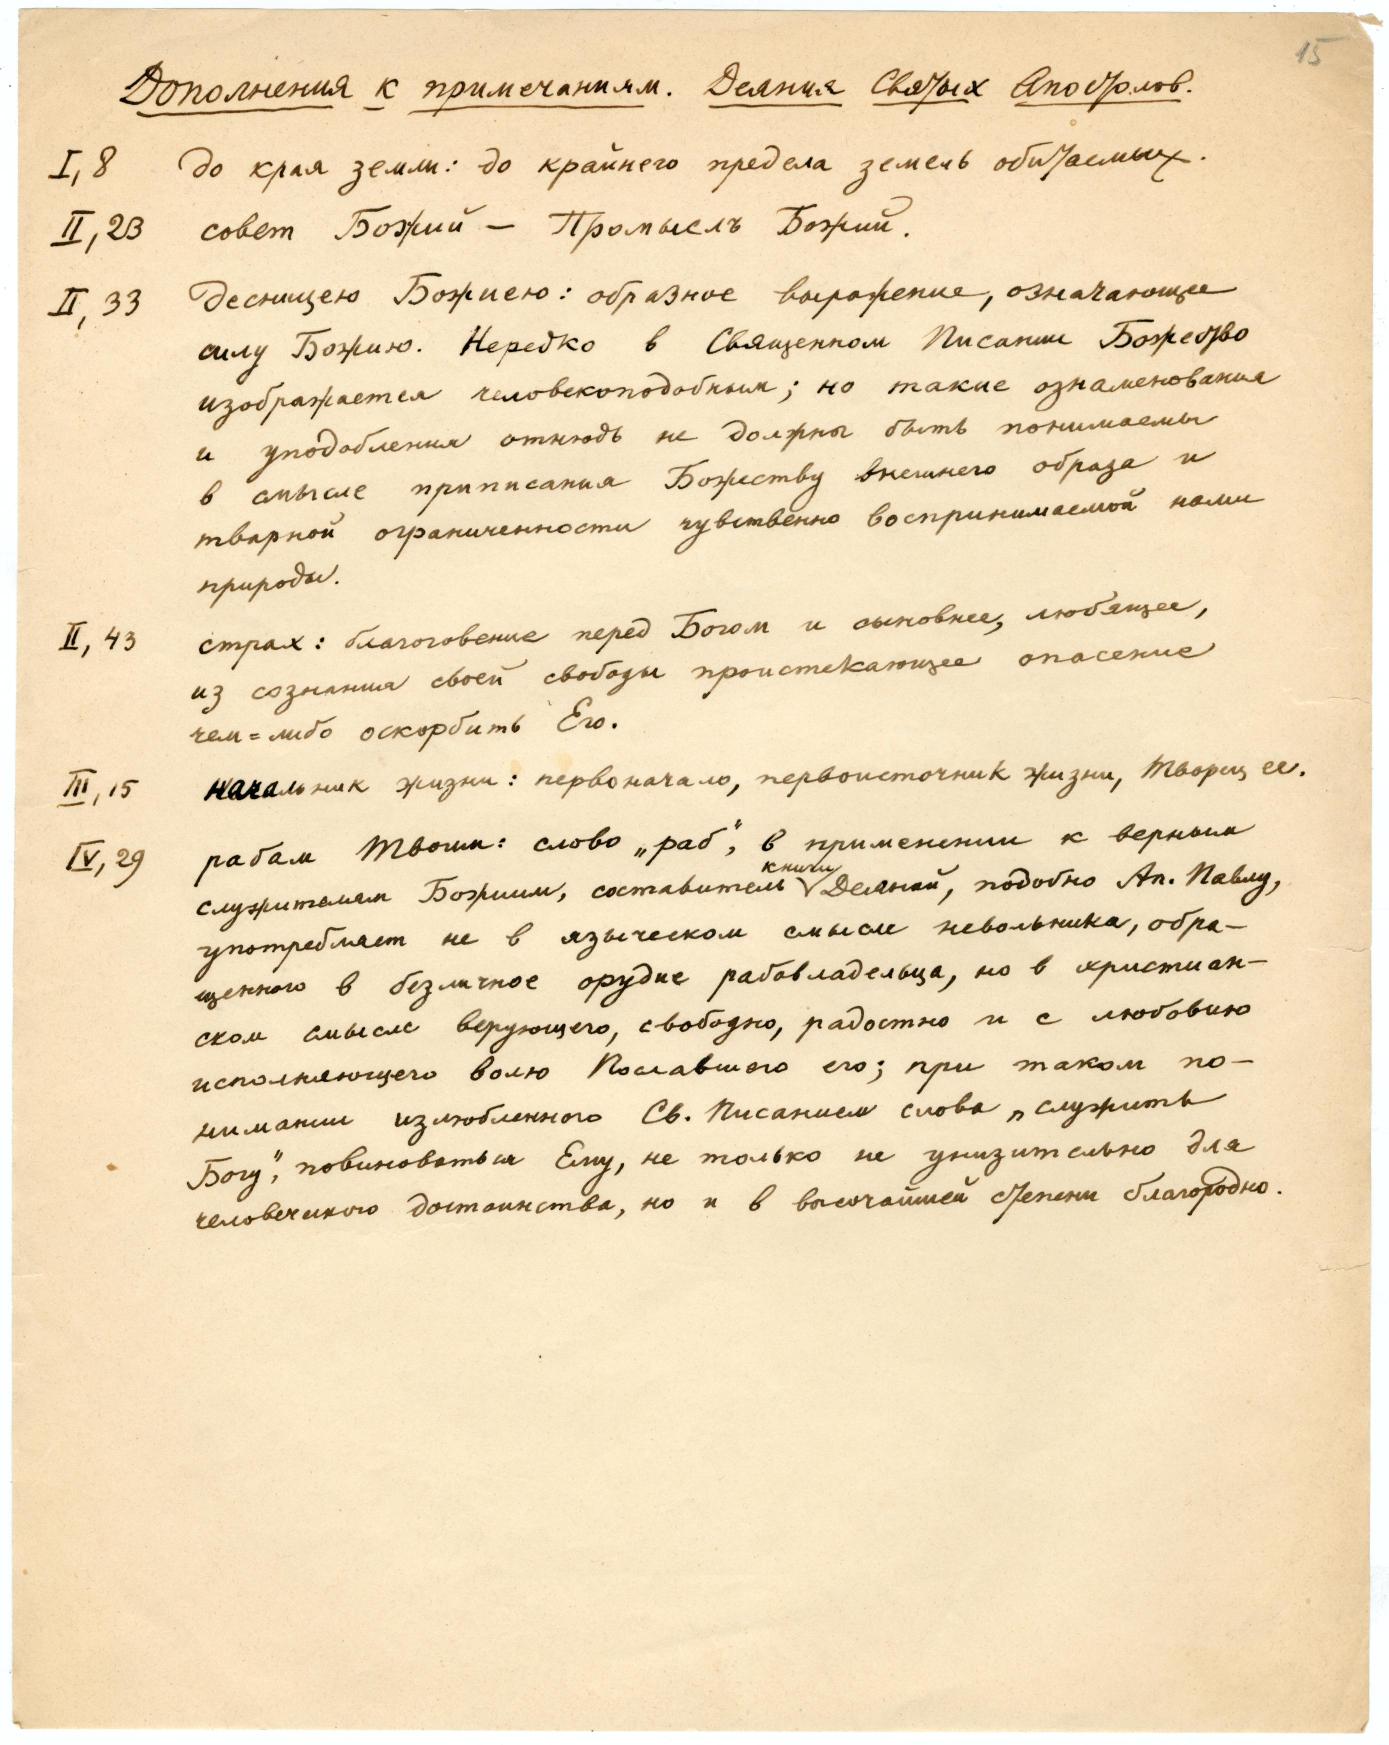 15
Дополнения к примечаниям. Деяния Святых Апостолов.
I, 8 до края земли: до крайнего предела земель обитаемых.
II, 23 совет Божий — Промыслъ Божий.
II, 33 десницею Божиею: образное выражение, означающее
силу Божию. Нередко в Священном Писании Божество
изображается человекоподобным; но такие ознаменования
и уподобления отнюдь не должны быть понимаемы
в смысле приписания Божеству внешнего образа и
тварной ограниченности чувственно воспринимаемой нами
природы.
II, 43 страх: благоговение перед Богом и сыновнее, любящее,
из сознания своей свободы проистекающее опасение
чем=либо оскорбить Его.
III, 15 начальник жизни: первоначало, первоисточник жизни, Творец ее.
IV, 29 рабам Твоим: слово „раб“, в применении к верным
служителям Божиим, составитель книги Деяний, подобно Ап. Павлу,
употребляет не в языческом смысле невольника, обра-
щенного в безличное орудие рабовладельца, но в христиан-
ском смысле верующего, свободно, радостно и с любовию
исполняющего волю Пославшего его; при таком по-
нимании излюбленного Св. Писанием слова „служить
Богу“, повиноваться Ему, не только не унизительно для
человеческого достоинства, но и в высочайшей степени благородно.